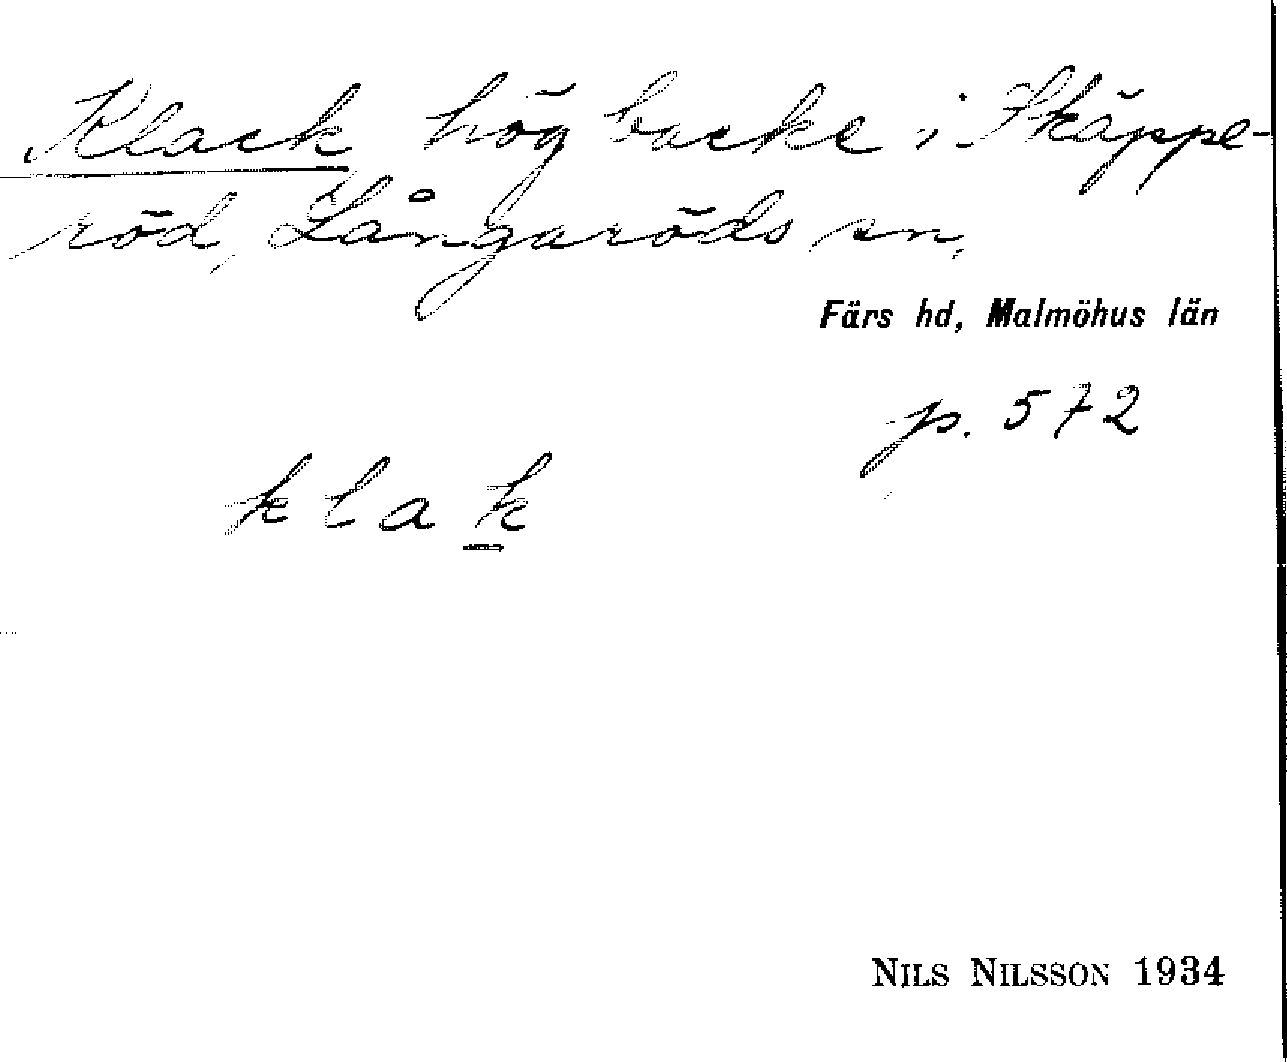 Klack hög backe i Skäppe-
röd, Långaröds sn.
Färs hd, Malmöhus län
p. 572
klak
NILS NILSSON 1934